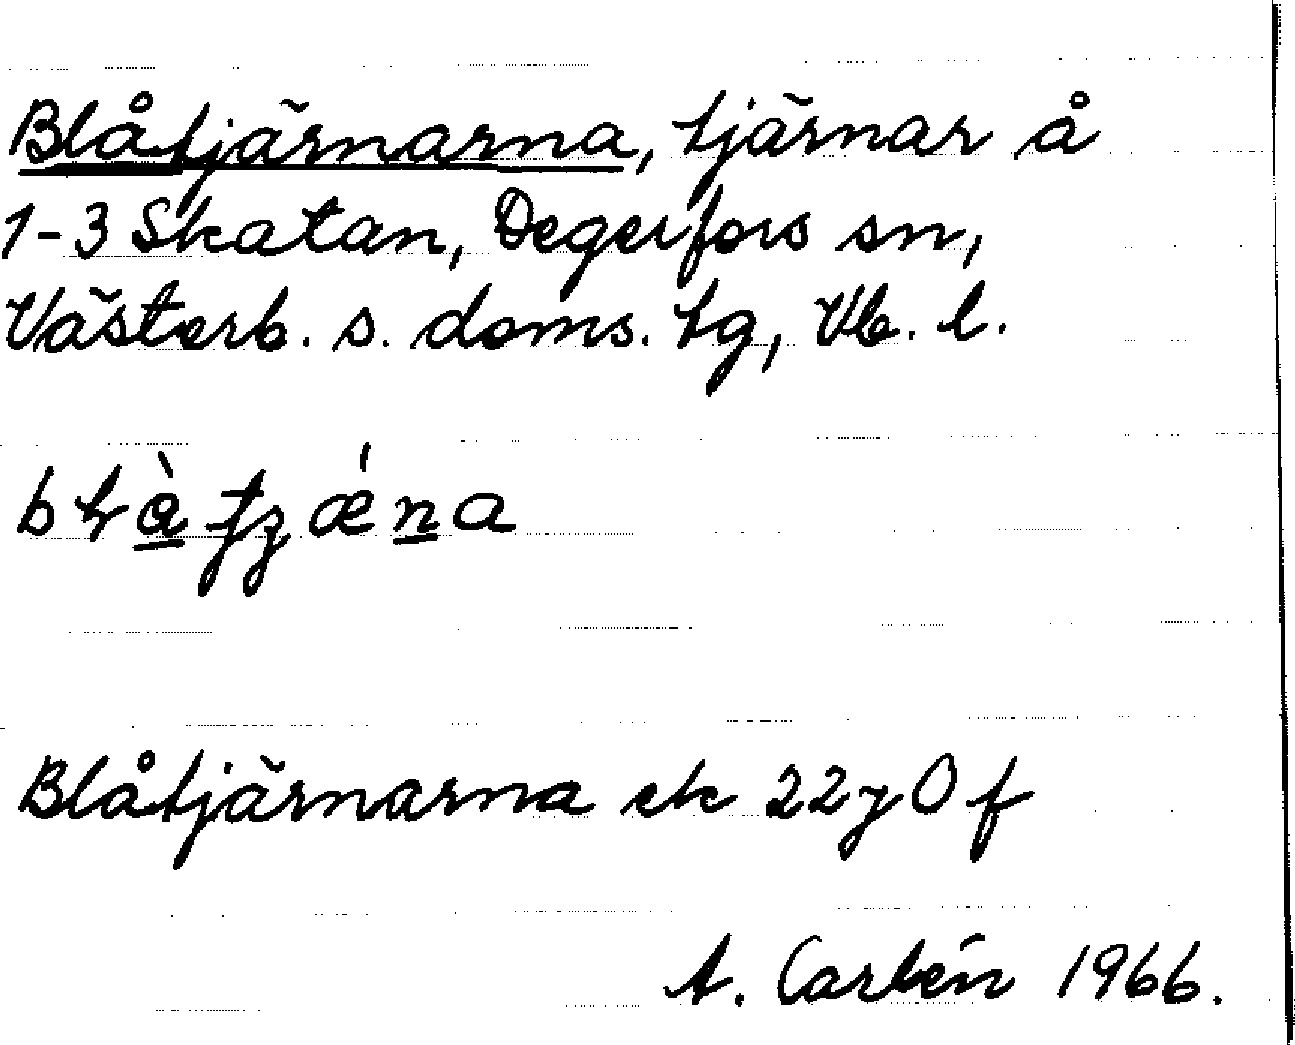 Blåtjärnarna, tjärnar å
1-3 Skatan, Degerfors sn,
Västerb. s. doms. tg, Vb. l.
Blåtjärnarna ek 22 y O f
A. Carlén 1966.